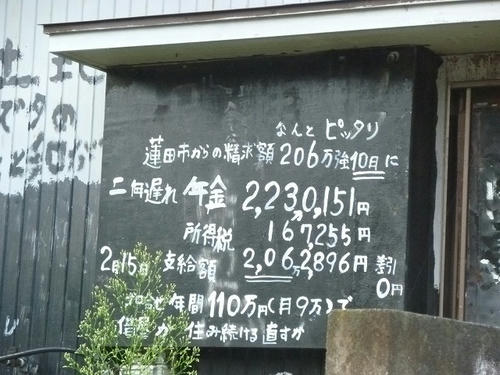 なんと ピッタリ
蓮田市からの精求額 206万強10日に
二ヶ月遅れ 年金 2,230,151円
所得税 167,255円
2月15日 支給額 2,062,896円 差引
0円
年間110万円(月9万)で
住み続ける 直すか